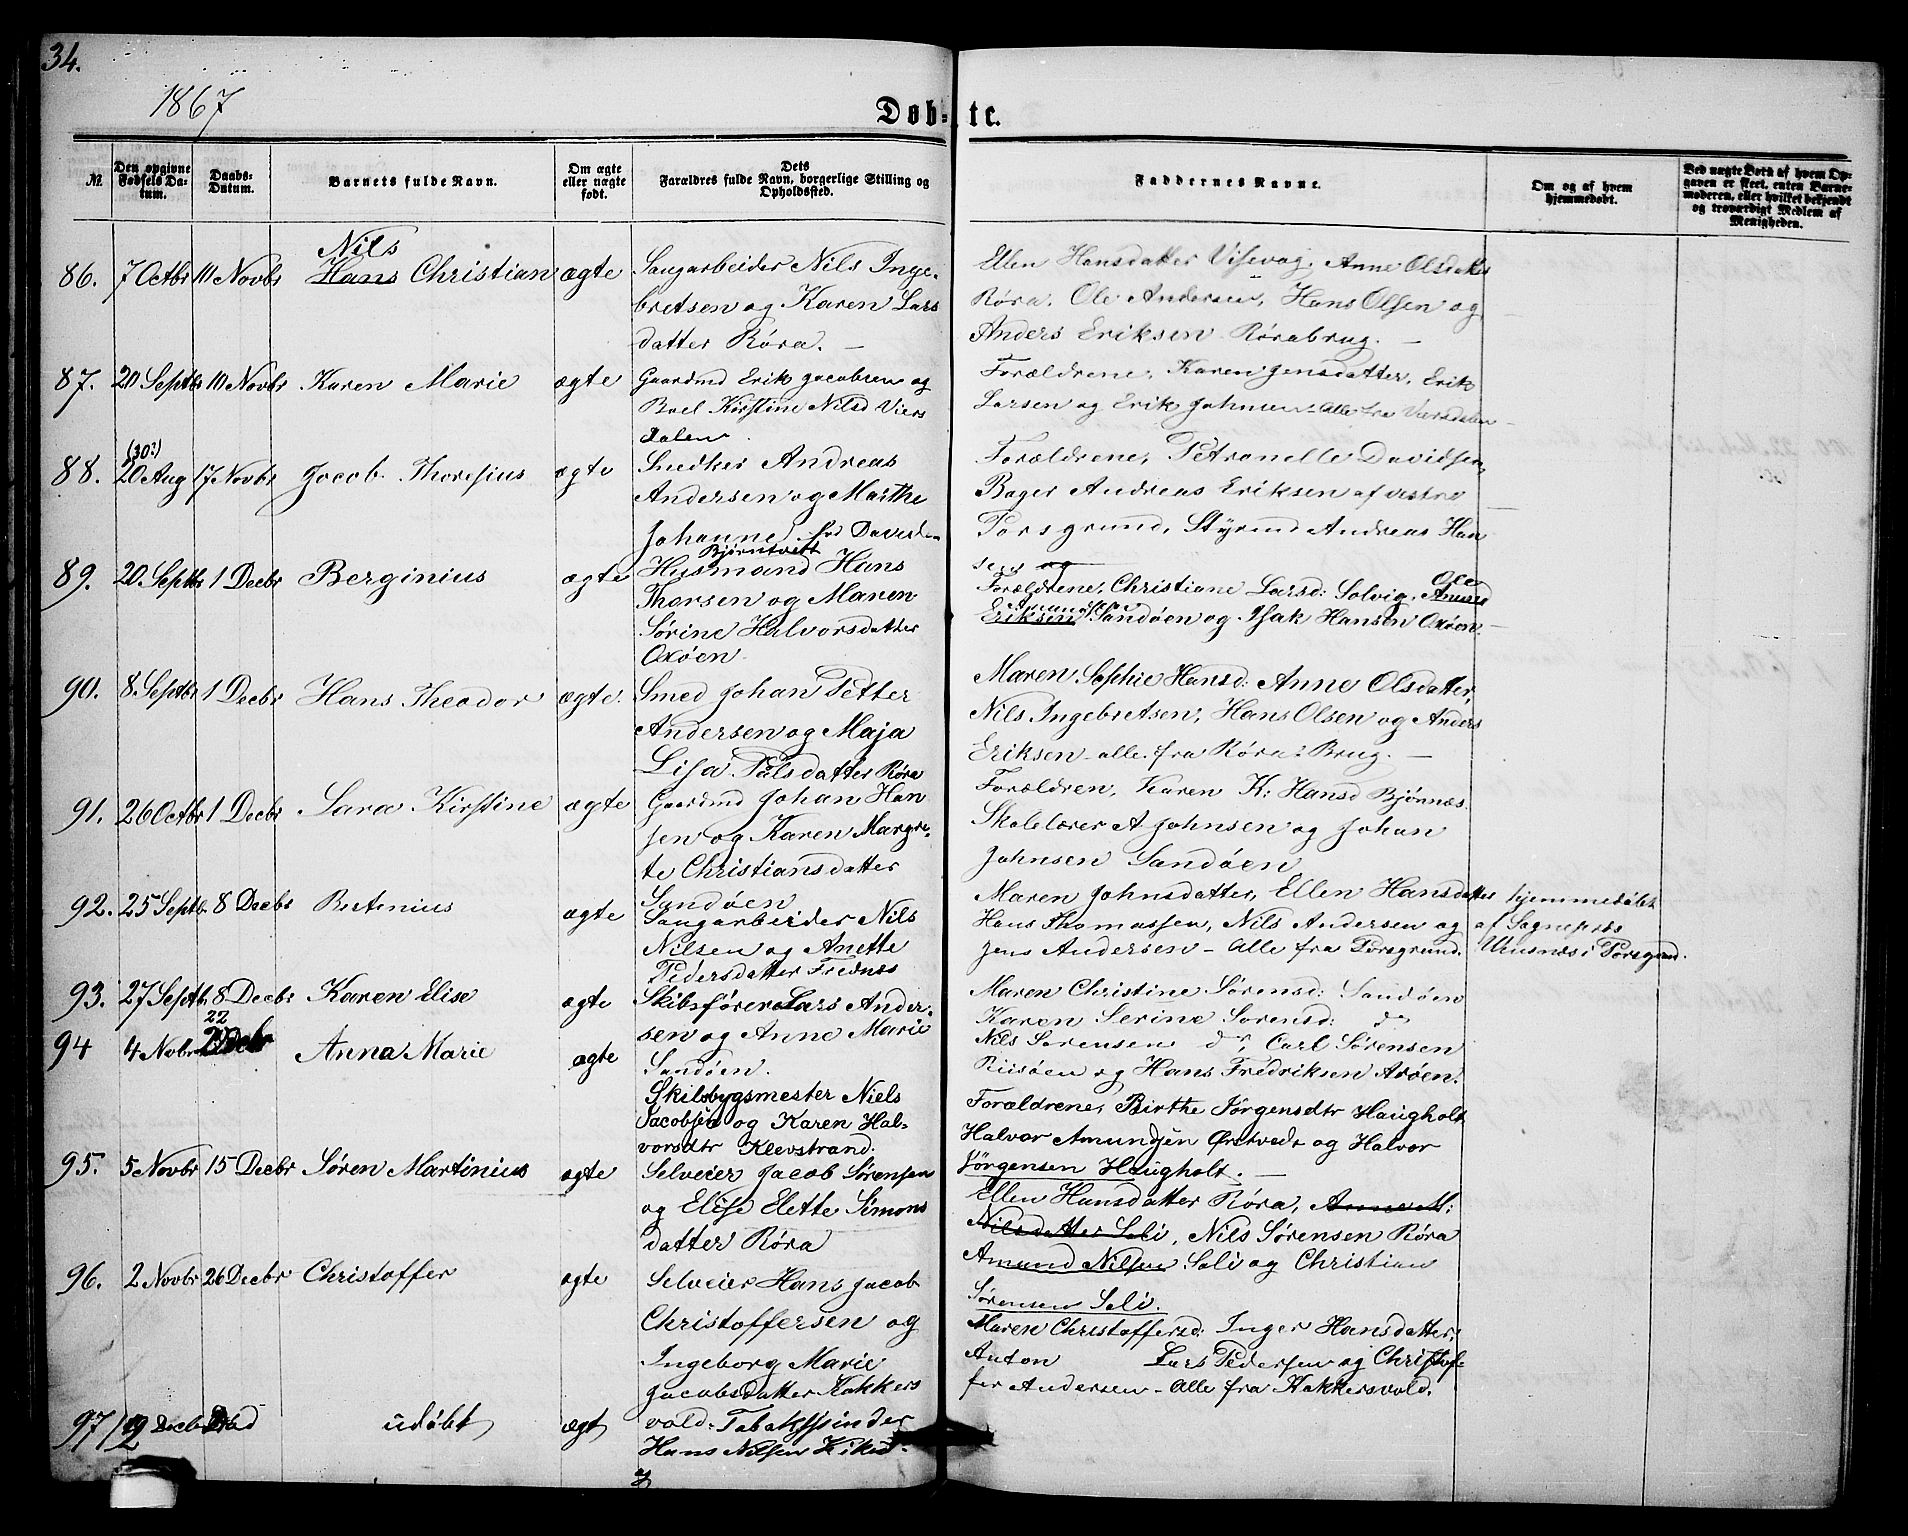 34.
1867
Døb- te.
№
Den opgivne Fødsels Datum.
Daabs-Datum.
Barnets fulde Navn.
Om ægte eller uægte født.
Dets Forældres fulde Navn, borgerlige Stilling og Opholdssted.
Faddernes Navne.
Om og af hvem hjemmedøbt.
Ved uægte Børn af hvem Opgaven er skeet, enten Barnemoderen, eller hvilket bekjendt og troværdigt Medlem af Menigheden.
86. 7 Octbr 10 Novbr Nils Hans Christian ægte
Saugarbeider Nils Inge-
bretsen og Karen Lars
datter Røra. —
Ellen Hansdatter Visevag. Anne Olsdatter
Røra, Ole Andersen, Hans Olsen og
Anders Eriksen Rørabrug. —
87. 20 Septbr 10 Novbr Karen Marie ægte
Gaardmd Erik Jacobsen og
Boel Kirstine Nilsd Viers
dalen.
Forældrene, Karen Jensdatter, Erik
Larsen og Erik Johnsen. alle fra Viersdalen
88. (30?) 20 Aug 17 Novbr Jacob Thoresius ægte
Snedker Andreas
Andersen og Marthe
Johanne fød Davidsen
Bjørntvedt
Forældrene, Petronelle Davidsen,
Bager Andreas Eriksen af vestre
Porsgrund, Styrmd Andreas Han
sen og
89. 20 Septbr 1 Decbr Berginius ægte
Husmand Hans
Thorsen og Maren
Sørine Halvorsdatter
Oxøen
Forældrene, Christiane Larsd: Solvig, Ole
Eriksen Sandøen og Isak Hansen Oxøen.
90. 8 Septbr 1 Decbr Hans Theodor ægte.
Smed Johan Petter
Andersen og Maja
Lisa Palsdatter Røra
Maren Sophie Hansd: Anne Olsdatter,
Nils Ingebretsen, Hans Olsen og Anders
Eriksen alle fra Røra Brug. —
91. 26 Octbr 1 Decbr Sara Kirstine ægte
Gaardmd Johan Han
sen og Karen Margre-
te Christiansdatter
Sandøen
Forældren, Karen K: Hansd Bjørnnæs.
Skolelærer A Johnsen og Johan
Johnsen Sandøen
92. 25 Septb. 8 Decbr Betenius ægte
Saugarbeider Nils
Nilsen og Anette
Pedersdatter Frednæs
Maren Johnsdatter, Ellen Hansdatter
Hans Thomassen, Nils Andersen og
Jens Andersen — Alle fra Porsgrund.
hjemmedøbt
af Sognepræs
i Porsgrund.
93. 27 Septb. 8 Decbr Karen Elise ægte
Skibsfører Lars Ander-
sen og Anne Marie
Sandøen.
Maren Christine Sørensd: Sandøen
Karen Serine Sorensd: do
Nils Sorensen do, Carl Sørensen
Riisøen og Hans Fredriksen Arøen.
94 4 Novbr 22 Decbr Anna Marie ægte
Skibsbygsmester Niels
Jacobsen og Karen Hal-
vorsdtr Klevstrand.
Forældrene, Birthe Jørgensdtr Haugholt
Halvor Amundsen Ørstvedt og Halvor
Jørgensen Haugholt. —
95. 5 Novbr 15 Decbr Søren Martinius ægte
Selveier Jacob Sørensen
og Elise Elette Simons
datter Røra
Ellen Hansdatter Røra, Anne M:
Nilsdatter Soli, Nils Sørensen Røra
Amund Nilsen Soli og Christian
Sørensen Soli.
96. 2 Novbr 26 Decbr Christoffer ægte
Selveier Hans Jacob
Christoffersen og
Ingeborg Marie
Jacobsdatter Kokkers
vold.
Maren Christoffersd: Inger Hansdatter,
Anton Lars Pedersen og Christof-
fer Andersen — Alle fra Kokkersvold.
97 12 Decbr Død udøbt ægt
Tabakspinder
Hans Nilsen
og